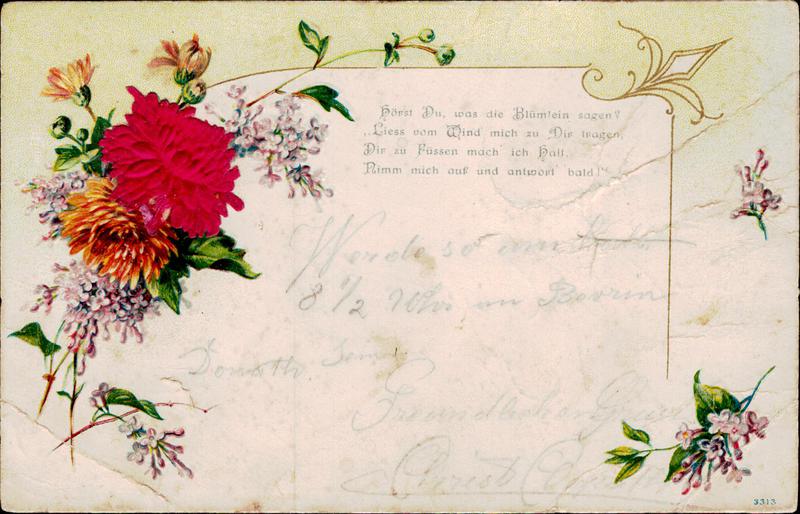 Hörst Du, was die Blümlein sagen?
„Liess vom Wind mich zu Dir tragen,
Dir zu Füssen mach' ich Halt,
Nimm mich auf und antwort' bald!"
Werde so
8 1/2 Uhr in
Donath
Freundlichen
3313